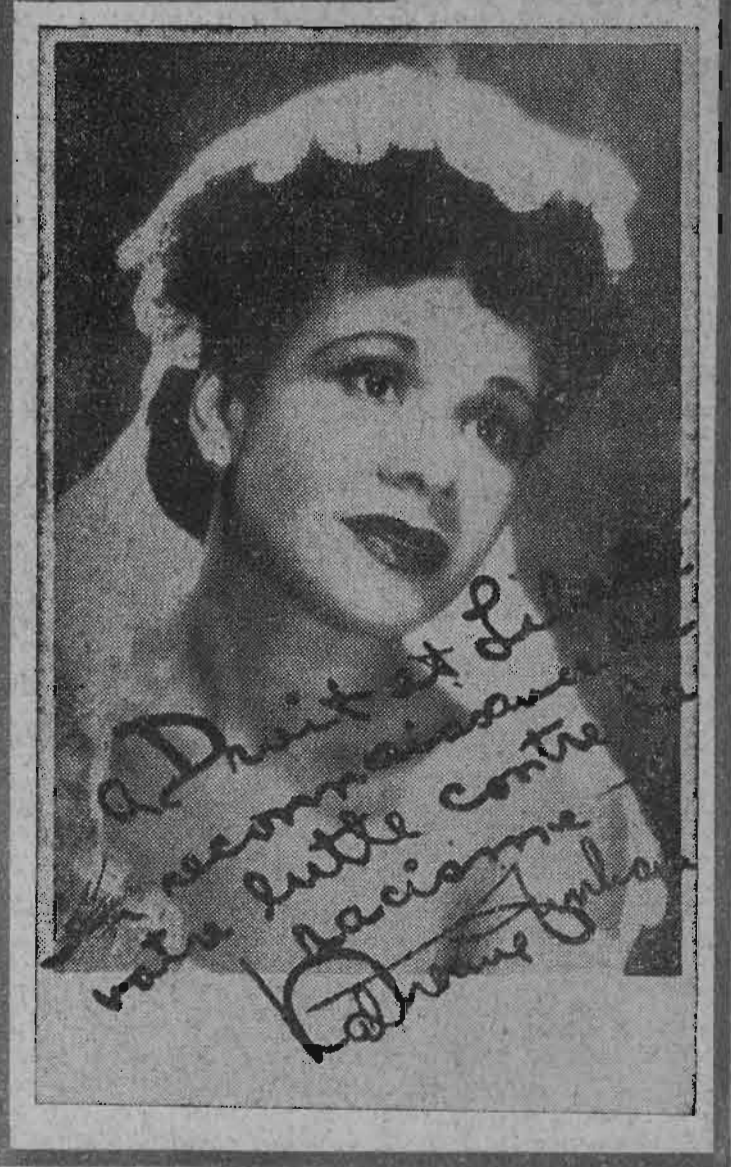 A Droit et Liberté
En reconnaissance de
votre lutte contre le
racisme
Katherine Dunham